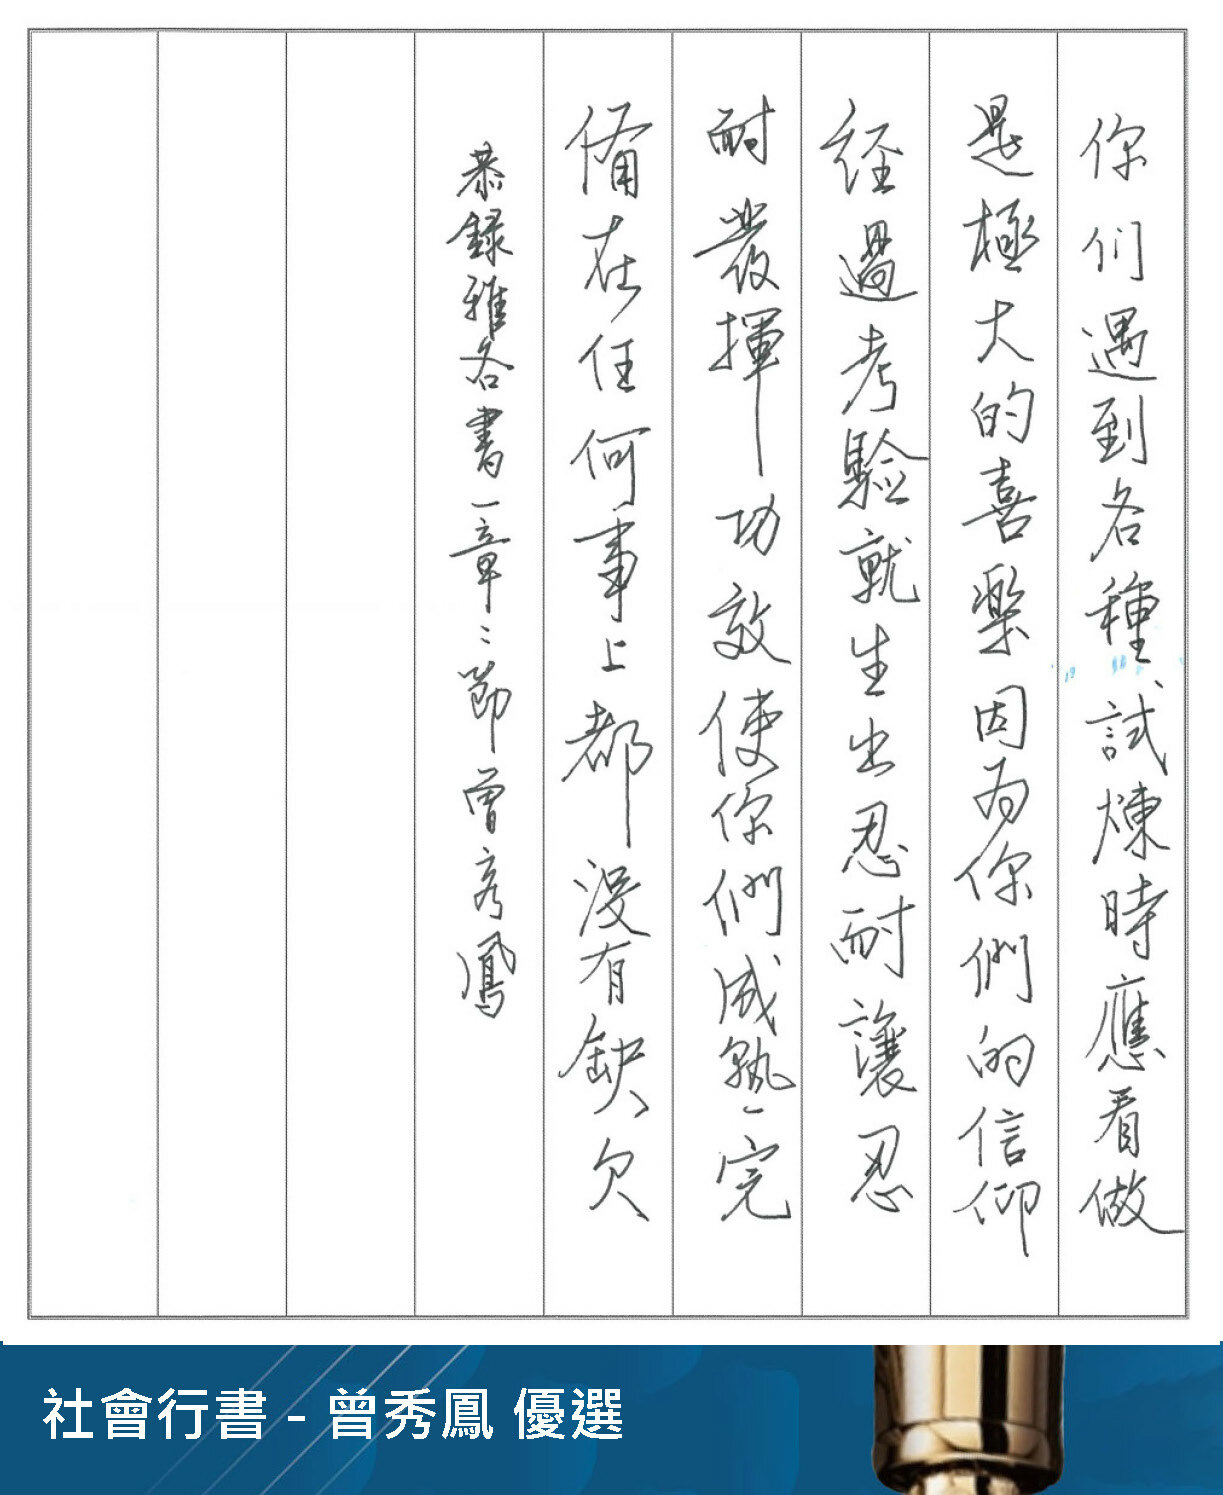 你们遇到各種試煉時應看做
是極大的喜樂因为你們的信仰
经過考驗就生出忍耐讓忍
耐發揮功效使你們成熟完
備在任何事上都没有缺欠
恭録雅各書一章二節曾秀鳳
社會行書-曾秀鳳 優選